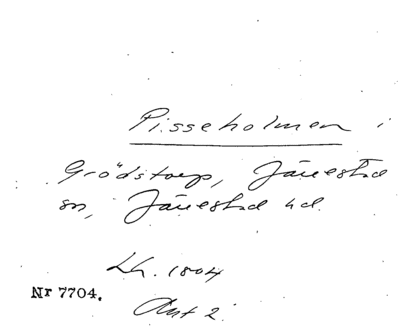 Pisseholmen i
Grödstorp, Järrestad
sn, Järrestad hd.
Lh. 1804
Nr 7704.
Akt 2